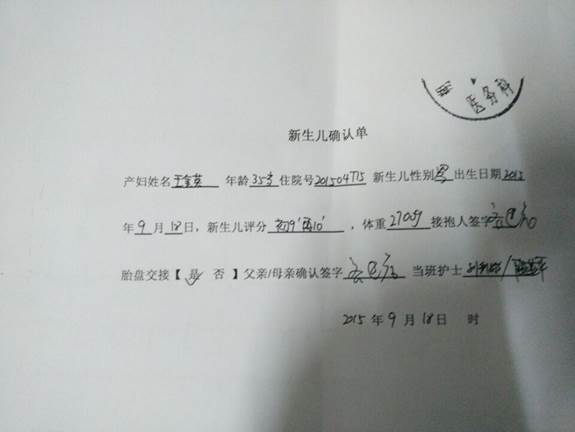 医务科
新生儿确认单
产妇姓名王金英 年龄35岁住院号201504775 新生儿性别男出生日期2015
年9月18日,新生儿评分初9'再10',体重2705g接抱人签字
胎盘交接【是 否】父亲/母亲确认签字 当班护士
2015年9月18日 时